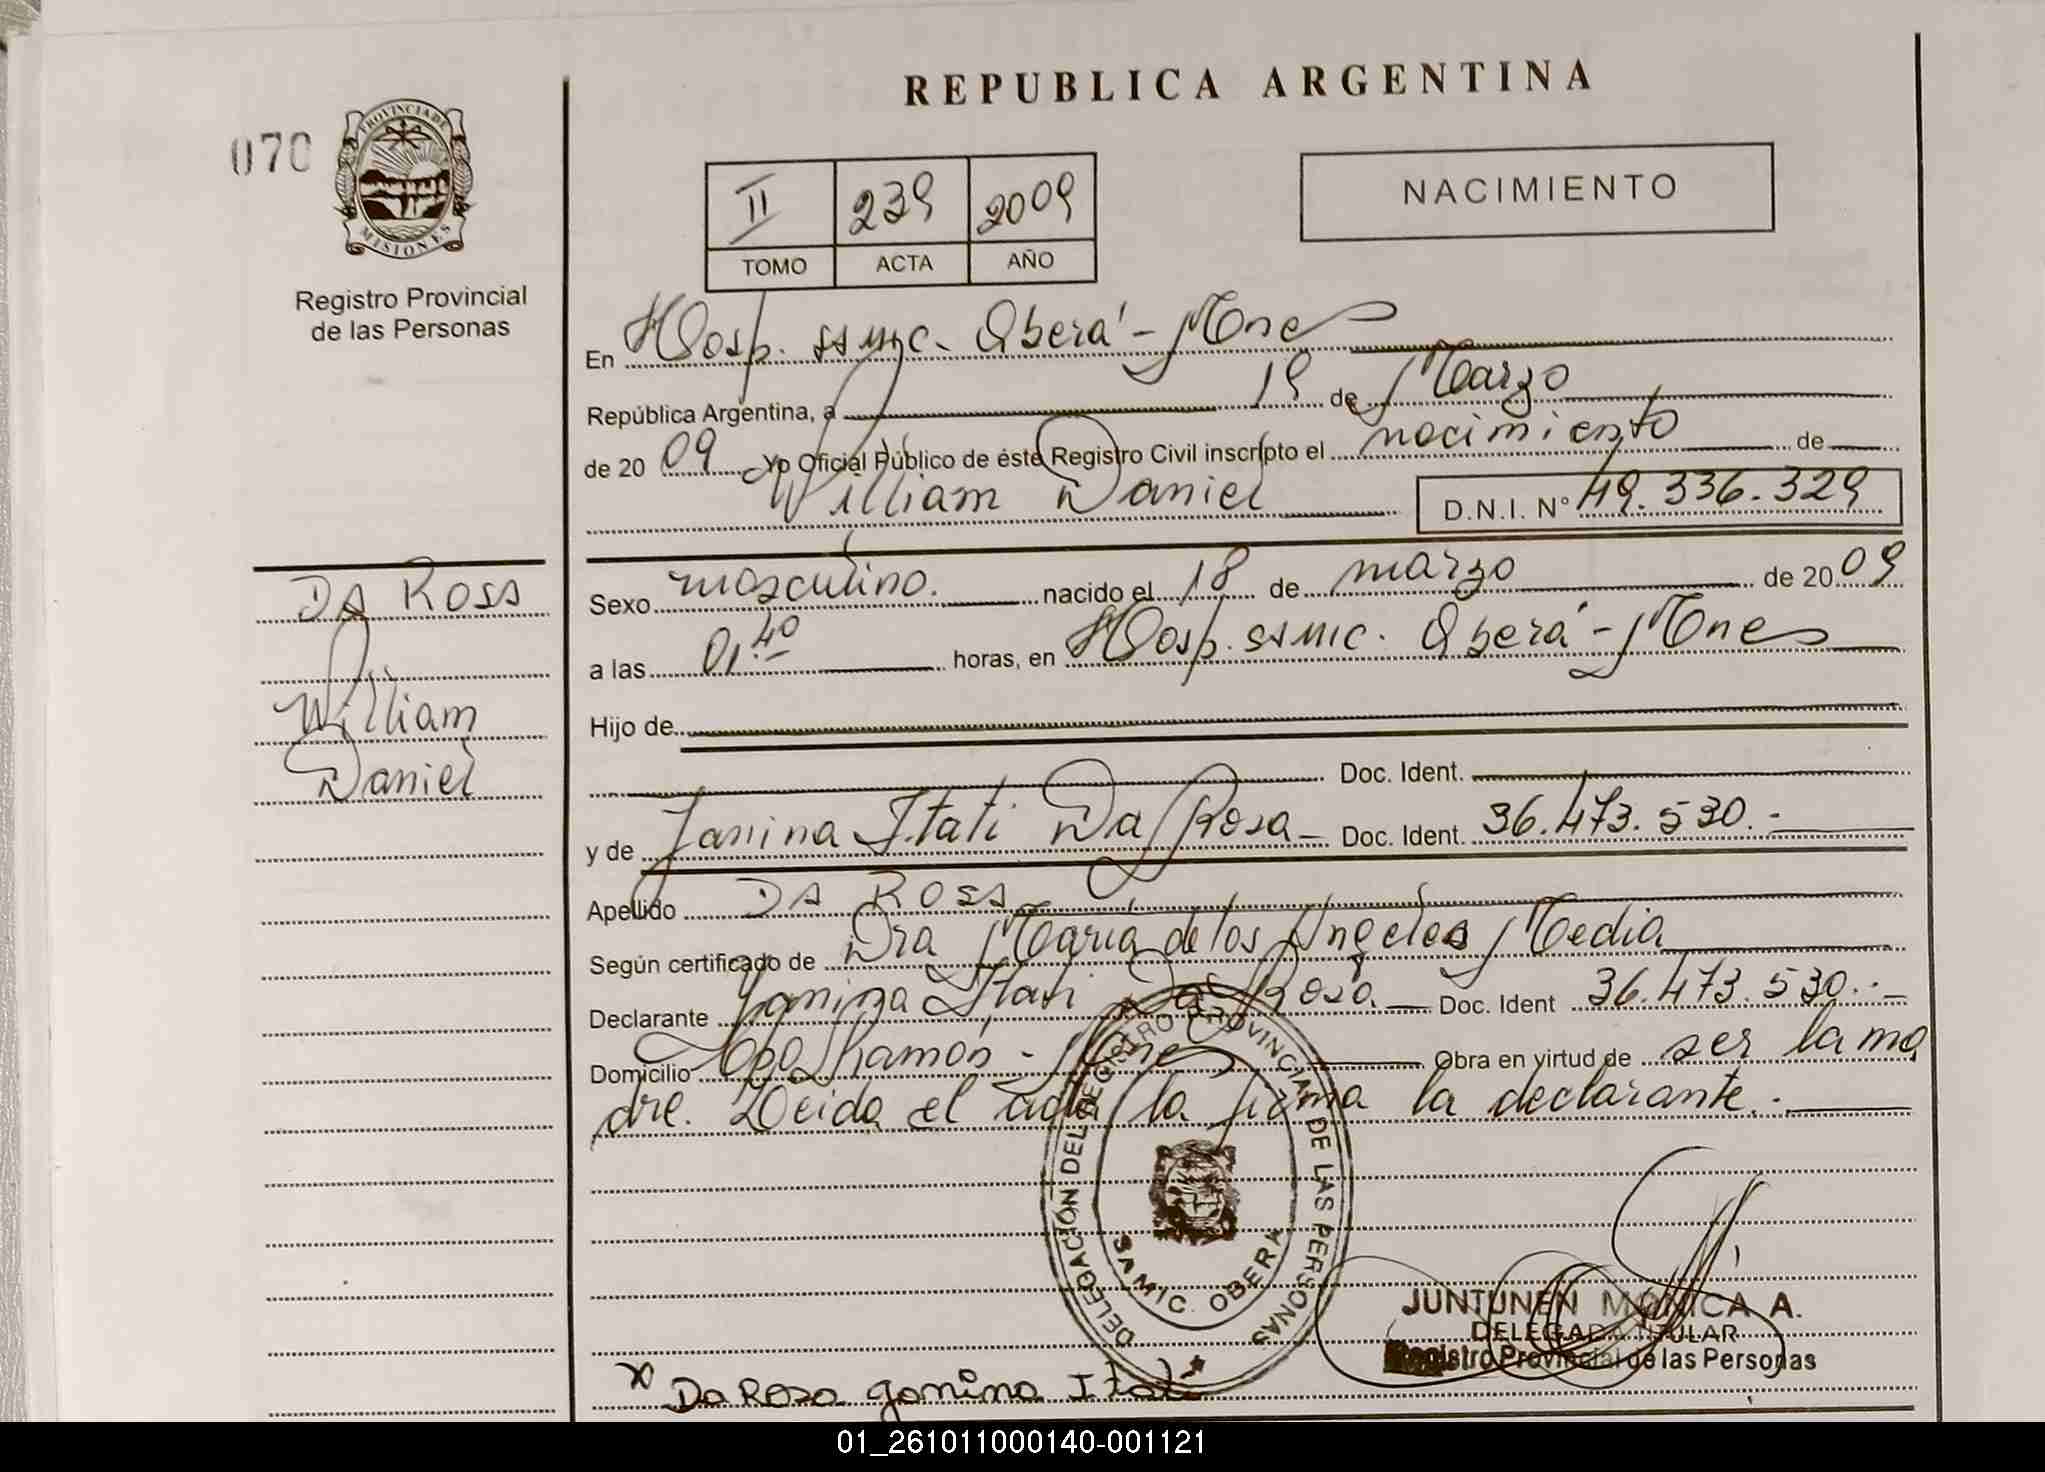 REPUBLICA ARGENTINA
070
PROVINCIA DE
MISIONES
Registro Provincial
de las Personas
II 239 2009
TOMO ACTA AÑO
NACIMIENTO
En Hosp. SAMIC. Oberá - Mnes
República Argentina, a 19 de Marzo
de 20 09 Yo Oficial Público de éste Registro Civil inscripto el nacimiento de
William Daniel D.N.I. Nº 49.336.329
DA ROSA
William
Daniel
Sexo masculino. nacido el 18 de marzo de 20 09
a las 01.40 horas, en Hosp. SAMIC. Oberá - Mnes
Hijo de
Doc. Ident.
y de Janina Itati Da Rosa Doc. Ident. 36.473.530.-
Apellido DA ROSA
Según certificado de Dra María de los Angeles Media
Declarante Janina Itati Da Rosa Doc. Ident 36.473.530.-
Domicilio Cpo Ramón - Mnes Obra en virtud de ser la ma
dre. Leida el acta la firma la declarante.
DELEGACIÓN DEL REGISTRO PROVINCIAL DE LAS PERSONAS
SAMIC OBERA
JUNTUNEN MONICA A.
DELEGADA TITULAR
Registro Provincial de las Personas
Da Rosa Janina Itati
01_261011000140-001121